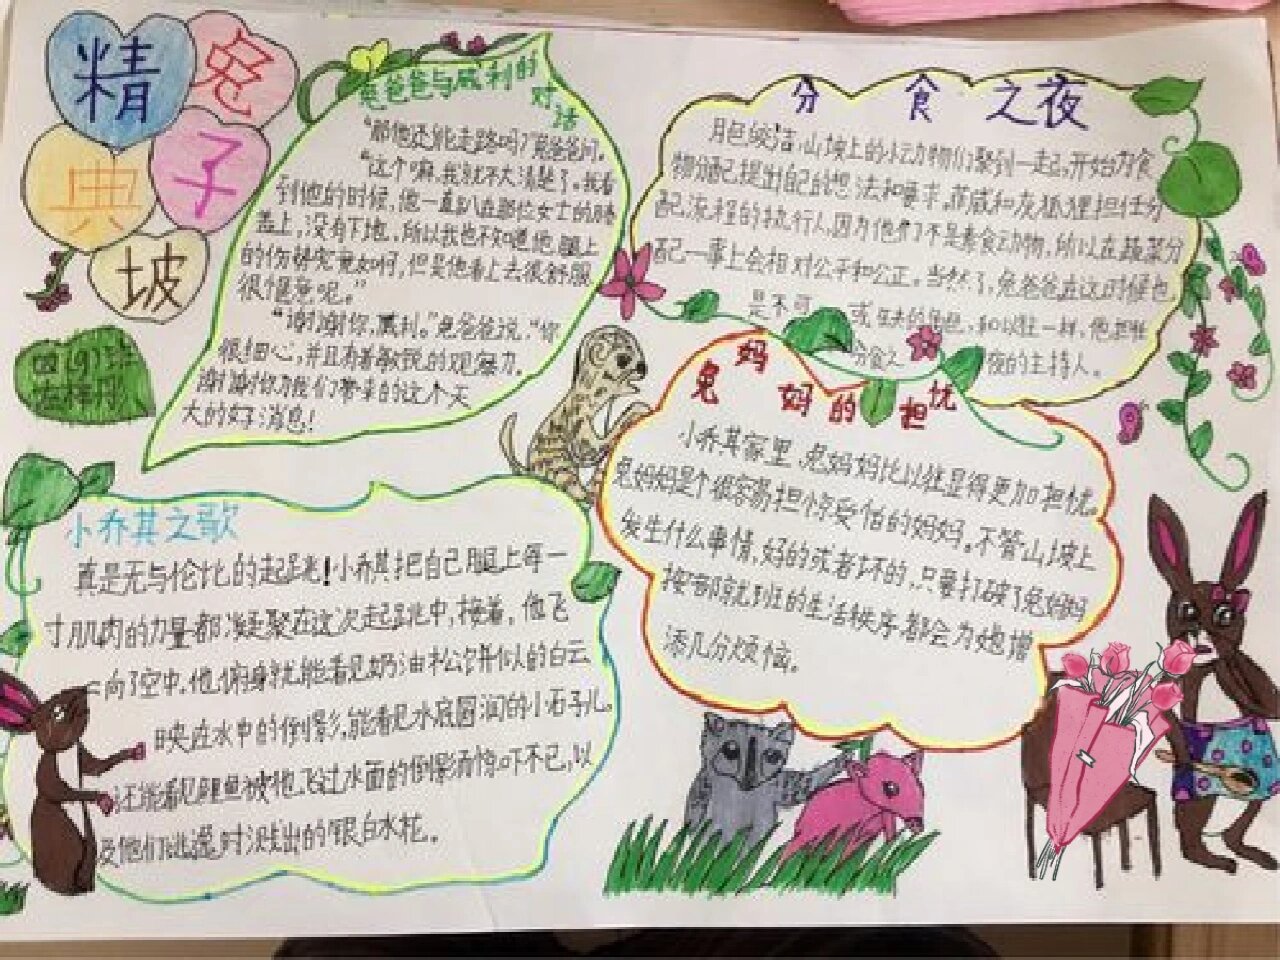 兔子坡
精典
兔爸爸与威利的对话
“那他还能走路吗？”兔爸爸问。
“这个嘛，我就不大清楚了。我看
到他的时候，他一直趴在那位女士的膝
盖上，没有下地，所以我也不知道他腿上
的伤势究竟如何，但是他看上去很舒服
很惬意呢。”
“谢谢你，威利。”兔爸爸说，“你
很细心，并且有着敏锐的观察力。
谢谢你为我们带来的这个天
大的好消息！
四(9)班
分食之夜
月色皎洁，山坡上的小动物们聚到一起，开始为食
物分配提出自己的想法和要求。菲威和灰狐狸担任分
配流程的执行人，因为他们不是素食动物，所以在蔬菜分
配一事上会相对公平和公正。当然了，兔爸爸在这时候也
是不可或缺的角色，和以往一样，他是
分食之夜的主持人。
兔妈妈的担忧
小乔其家里，兔妈妈比以往显得更加担忧。
兔妈妈是个很容易担惊受怕的妈妈。不管山坡上
发生什么事情，好的或者坏的，只要打破了兔妈妈
按部就班的生活秩序都会为她增
添几份烦恼。
小乔其之歌
真是无与伦比的起跳！小乔其把自己腿上每一
寸肌肉的力量都凝聚在这次起跳中，接着，他飞
向了空中，他俯身就能看见奶油松饼似的白云
映在水中的倒影，能看见水底圆润的小石子儿。
还能看见鲤鱼被他飞过水面的倒影而惊吓不已，以
及他们逃遁时溅出的银白水花。